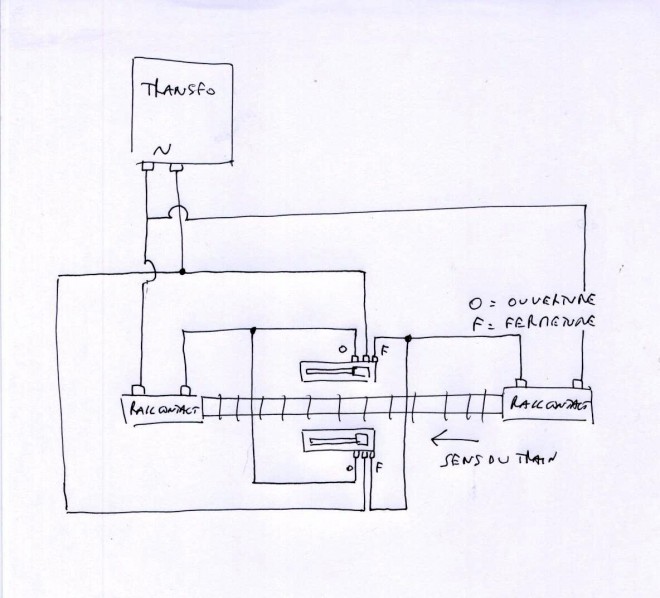 TRANSFO
N
O = OUVERTURE
F = FERMETURE
O F
RAIL CONTACT
RAIL CONTACT
O F
SENS DU TRAIN